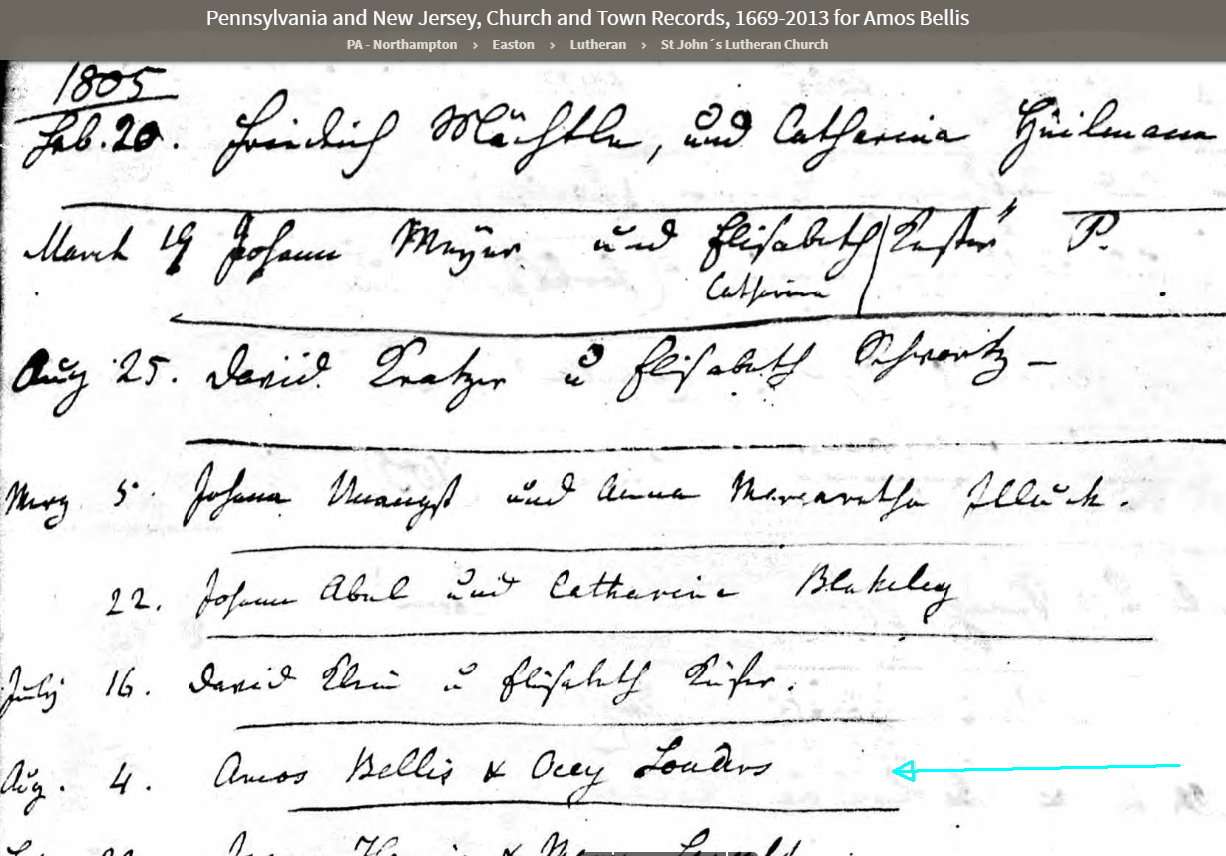 Pennsylvania and New Jersey, Church and Town Records, 1669-2013 for Amos Bellis
PA - Northampton › Easton › Lutheran › St John´s Lutheran Church
1805
Feb. 20. Friedrich Mächtle, und Catharina Heilmann
March 19 Johann Meÿer und Elisabeth P.
Catharina
Aug 25. David Kratzer u Elisabeth Schwartz –
Merz 5. Johann Unangst und Anna Margaretha
22. Johann Abel und Catharina Blakeley
July 16. David Klein u Elisabeth
Aug. 4. Amos Bellis & Ocey Louders